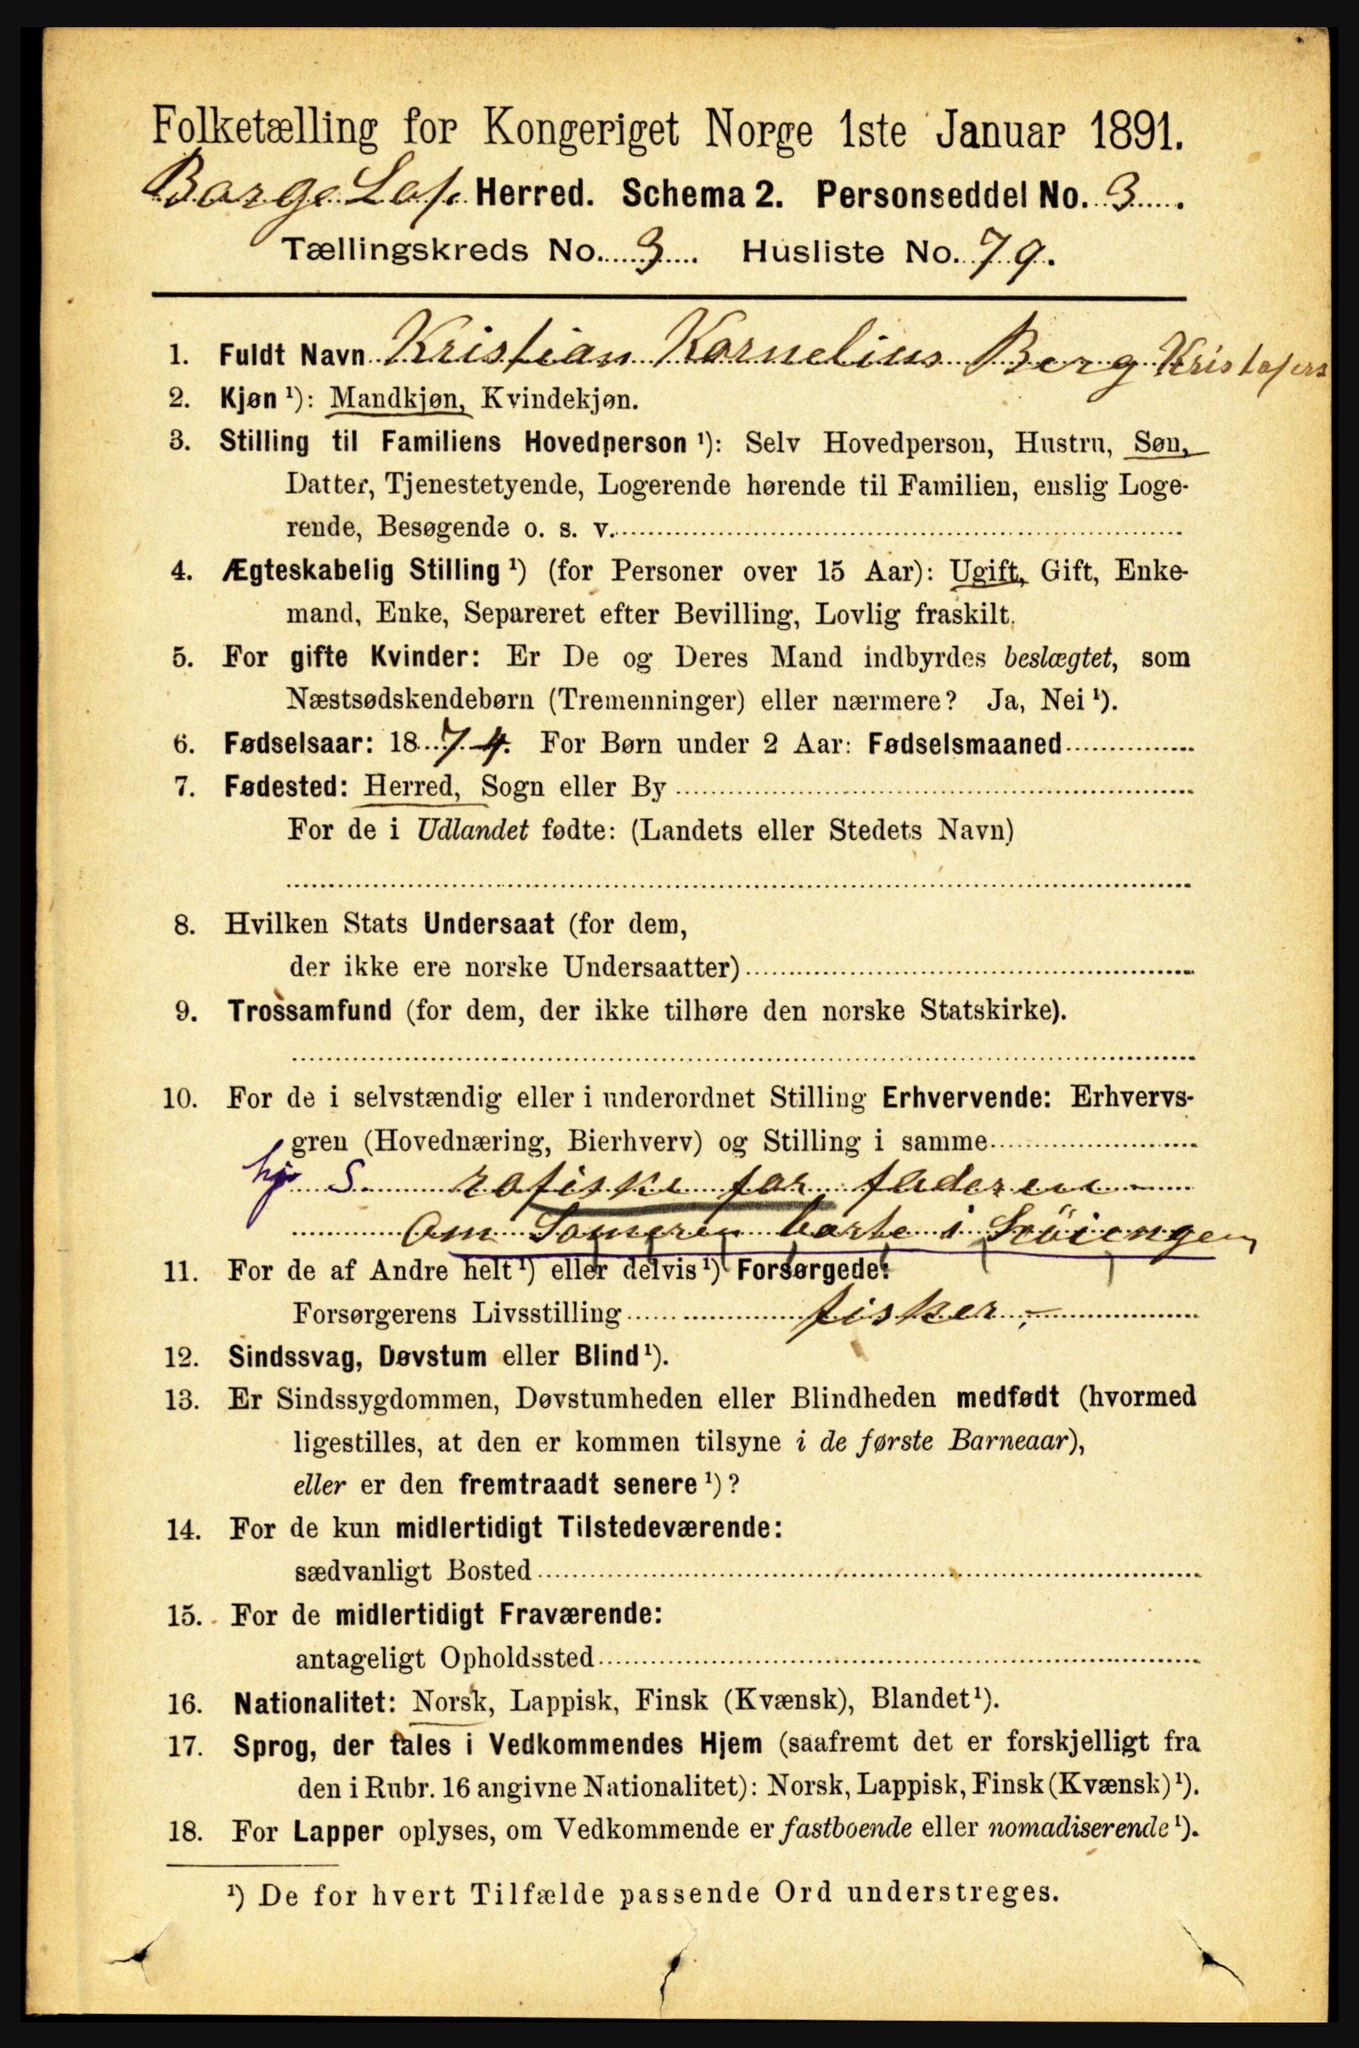 Folketælling for Kongeriget Norge 1ste Januar 1891.
Borge Lof. Herred. Schema 2. Personseddel No. 3.
Tællingskreds No. 3. Husliste No. 79.
1. Fuldt Navn Kristian Kornelius Berg Kristofers
2. Kjøn ¹): Mandkjøn, Kvindekjøn.
3. Stilling til Familiens Hovedperson ¹): Selv Hovedperson, Hustru, Søn,
Datter, Tjenestetyende, Logerende hørende til Familien, enslig Loge-
rende, Besøgende o. s. v.
4. Ægteskabelig Stilling ¹) (for Personer over 15 Aar): Ugift, Gift, Enke-
mand, Enke, Separeret efter Bevilling, Lovlig fraskilt.
5. For gifte Kvinder: Er De og Deres Mand indbyrdes beslægtet, som
Næstsødskendebørn (Tremenninger) eller nærmere? Ja, Nei ¹).
6. Fødselsaar: 1874. For Børn under 2 Aar: Fødselsmaaned
7. Fødested: Herred, Sogn eller By
For de i Udlandet fødte: (Landets eller Stedets Navn)
8. Hvilken Stats Undersaat (for dem,
der ikke ere norske Undersaatter)
9. Trossamfund (for dem, der ikke tilhøre den norske Statskirke).
10. For de i selvstændig eller i underordnet Stilling Erhvervende: Erhvervs-
gren (Hovednæring, Bierhverv) og Stilling i samme
hj S. rofiske for faderen
om Someren borte i
11. For de af Andre helt ¹) eller delvis ¹) Forsørgede:
Forsørgerens Livsstilling fisker
12. Sindssvag, Døvstum eller Blind ¹).
13. Er Sindssygdommen, Døvstumheden eller Blindheden medfødt (hvormed
ligestilles, at den er kommen tilsyne i de første Barneaar),
eller er den fremtraadt senere ¹)?
14. For de kun midlertidigt Tilstedeværende:
sædvanligt Bosted
15. For de midlertidigt Fraværende:
antageligt Opholdssted
16. Nationalitet: Norsk, Lappisk, Finsk (Kvænsk), Blandet ¹).
17. Sprog, der tales i Vedkommendes Hjem (saafremt det er forskjelligt fra
den i Rubr. 16 angivne Nationalitet): Norsk, Lappisk, Finsk (Kvænsk) ¹).
18. For Lapper oplyses, om Vedkommende er fastboende eller nomadiserende ¹).
¹) De for hvert Tilfælde passende Ord understreges.